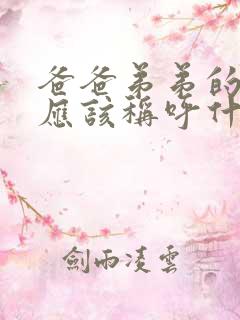 爸爸弟弟的
應該稱呼什
劍雨凌雲